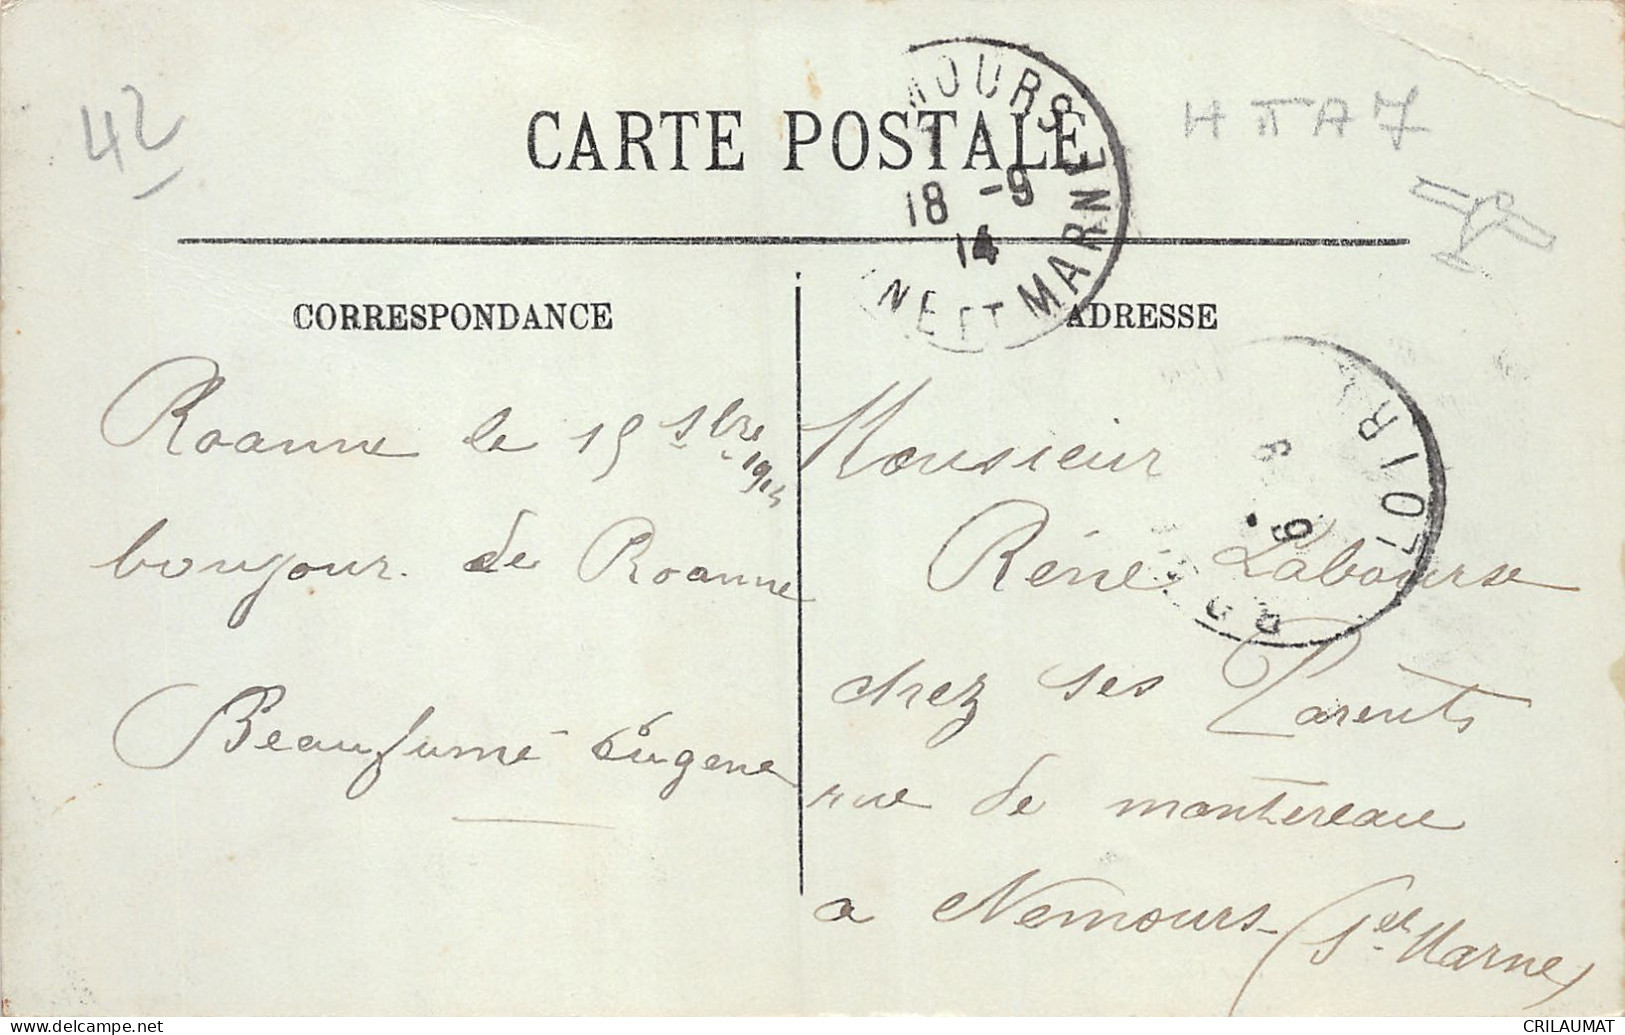 42
CARTE POSTALE
MOURS
18 -9
14
NE ET MARNE
H II A 7
CORRESPONDANCE
ADRESSE
Roanne le 15 Sbre
1914
bonjour. de Roanne
Beaufumé Eugene
LOIRE
Monsieur
Réné Labourse
chez ses Parents
rue de montereau
a Nemours (S et Marne)
delcampe.net
CRILAUMAT